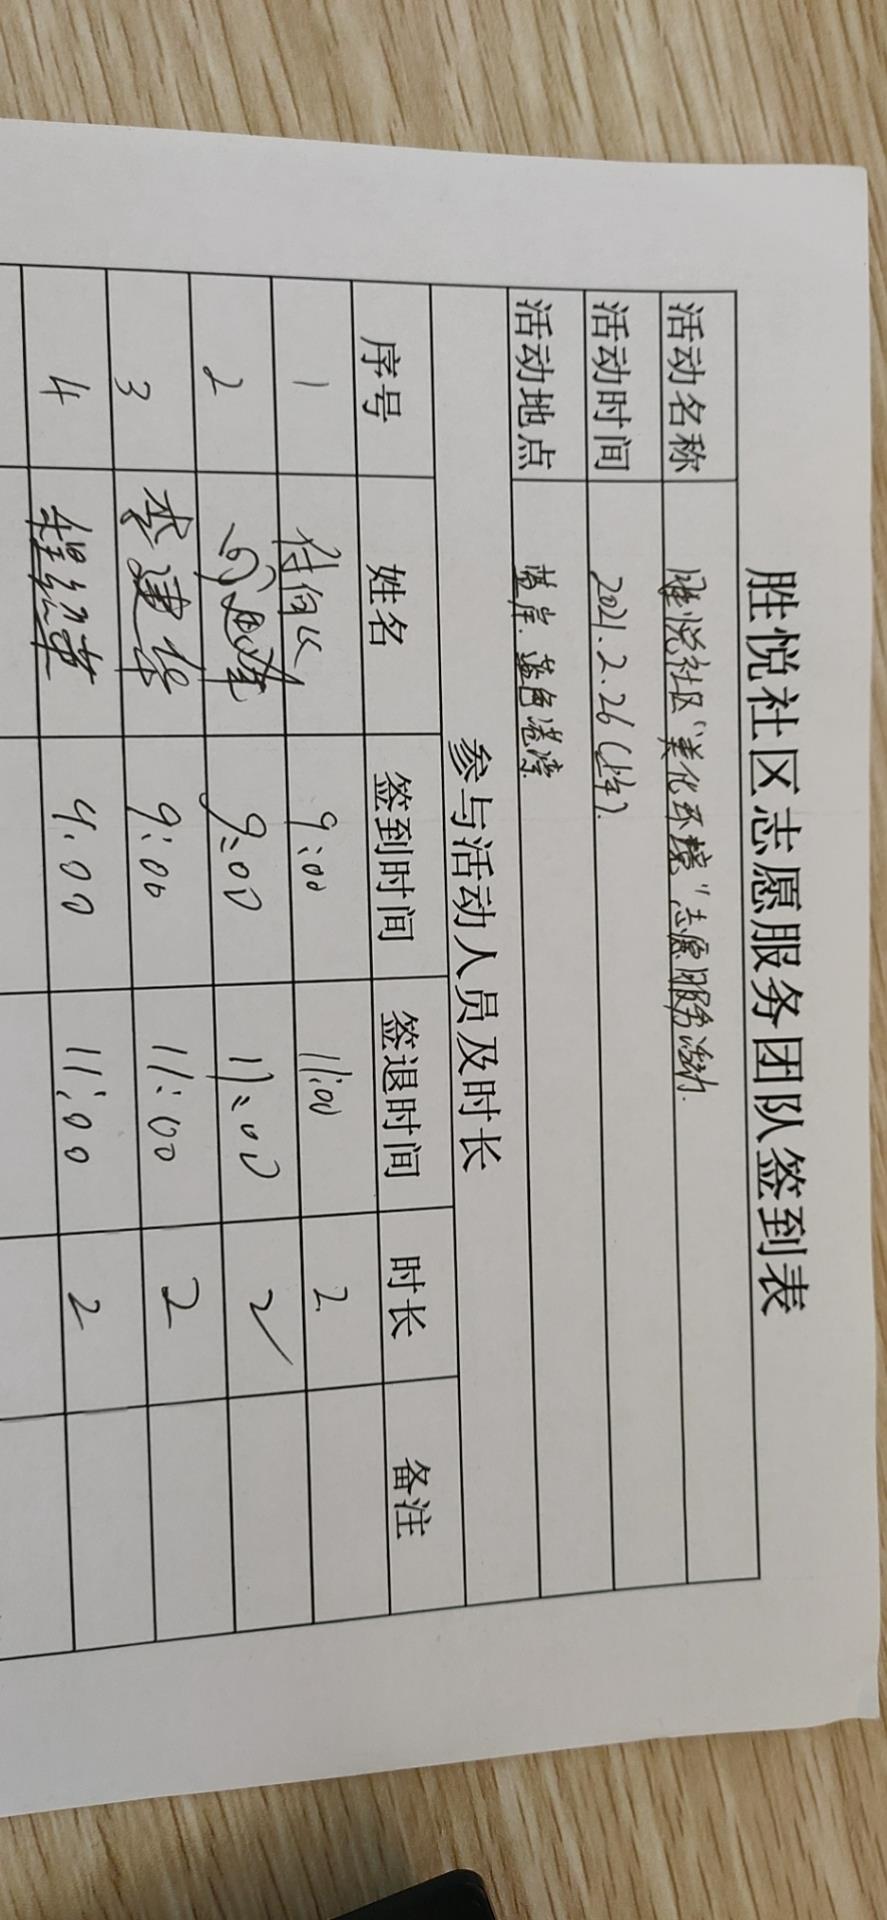 胜悦社区志愿服务团队签到表
活动名称 胜悦社区“美化环境”志愿服务活动.
活动时间 2021.2.26(上午).
活动地点 蓝岸.蓝色港湾
参与活动人员及时长
序号 姓名 签到时间 签退时间 时长 备注
1 9:00 11:00 2
2 9:00 11:00 2
3 李建华 9:00 11:00 2
4 9:00 11:00 2